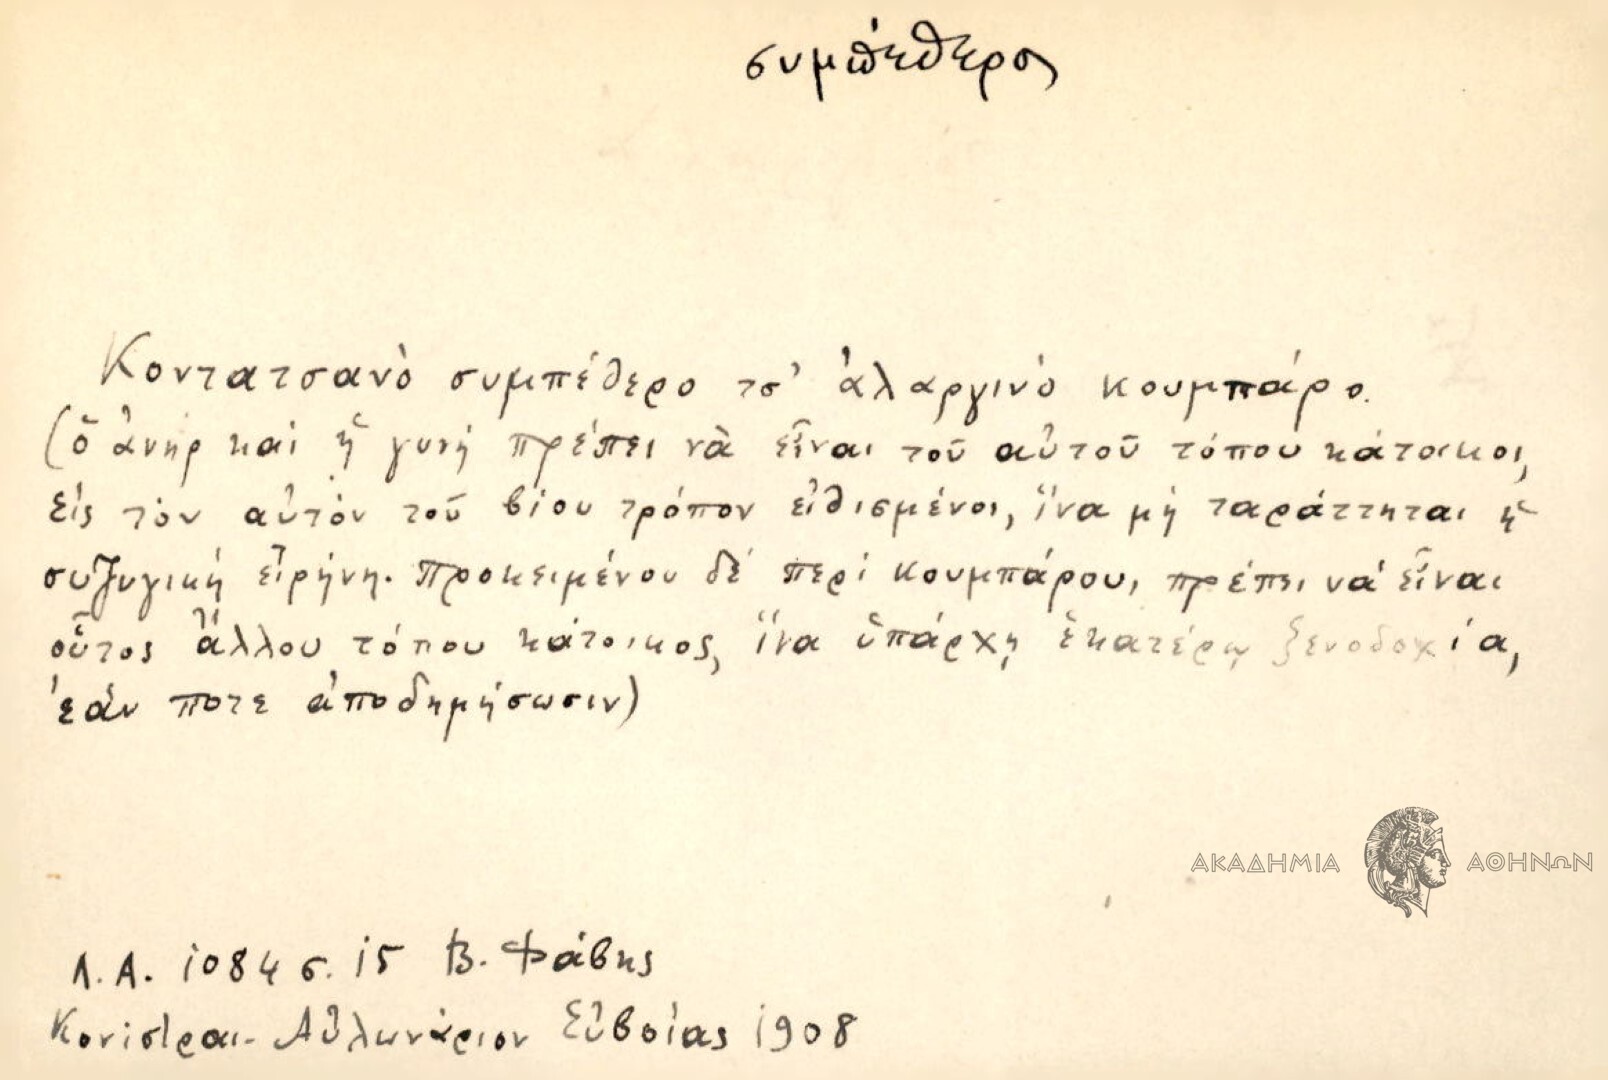 συμπέθερος
Κοντατσανὸ συμπέθερο τσ' ἀλαργινὸ κουμπάρο.
(ὁ ἀνὴρ καὶ ἡ γυνή πρέπει νὰ εἶναι τοῦ αὐτοῦ τόπου κάτοικοι,
εἰς τὸν αὐτὸν τοῦ βίου τρόπον εἰθισμένοι, ἵνα μή ταράττηται ἡ
συζυγική εἰρήνη. Προκειμένου δέ περί κουμπάρου, πρέπει νά εἶναι
οὗτος ἄλλου τόπου κάτοικος, ἵνα ὑπάρχῃ ἑκατέρῳ ξενοδοχία,
ἐάν ποτε ἀποδημήσωσιν)
ΑΚΑΔΗΜΙΑ ΑΘΗΝΩΝ
Λ.Α. 1084 σ. 15 Β. Φάβης
Κονίστραι - Αὐλωνάριον Εὐβοίας 1908